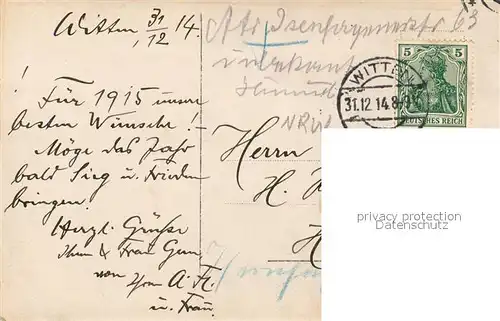 Witten 31/12 14.
!
Für 1915 unsere
besten Wünsche!
Möge das Jahr
bald Sieg u. Frieden
bringen.
Herzl. Grüße
Ihnen & Frau Gem.
von Ihrem A. H.
u. Frau
63
unbekannt
5
DEUTSCHES REICH
WITTEN
31.12.14.8-
Herrn
H.
H
privacy protection
Datenschutz